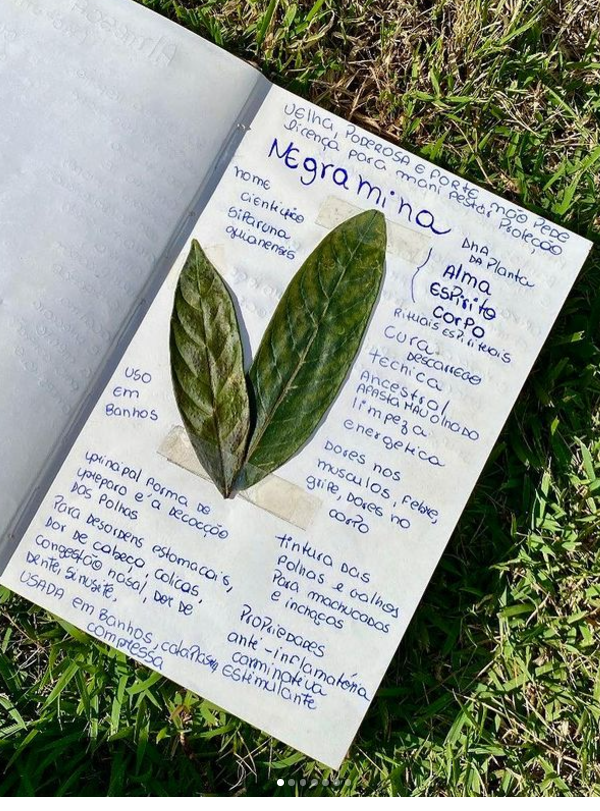 Velha, PODEROSA E FORTE não PEDE
licença para mani festar Proteção
NEgramina
nome
científico
Siparuna
guianensis
DNA
DA Planta
Alma
ESPírito
CORPO
RITUAIS ESPIRITUAIS
cura
DESCARREGO
técnica
Ancestral,
AFASTA MAU OLHADO
limpeza
energética
USO
em
Banhos
Dores nos
musculos, febre,
gripe, Dores no
corpo
principal forma de
preparo é a decocção
das folhas
Para desordens estomacais,
Dor de cabeça, colicas,
congestão nasal, dor de
Dente, sinusite.
USADA em Banhos, cataplasma,
compressa
tintura das
folhas e galhos
Para machucados
e inchaços
PROPRIEDADES
anti-inflamatória
carminativa
estimulante